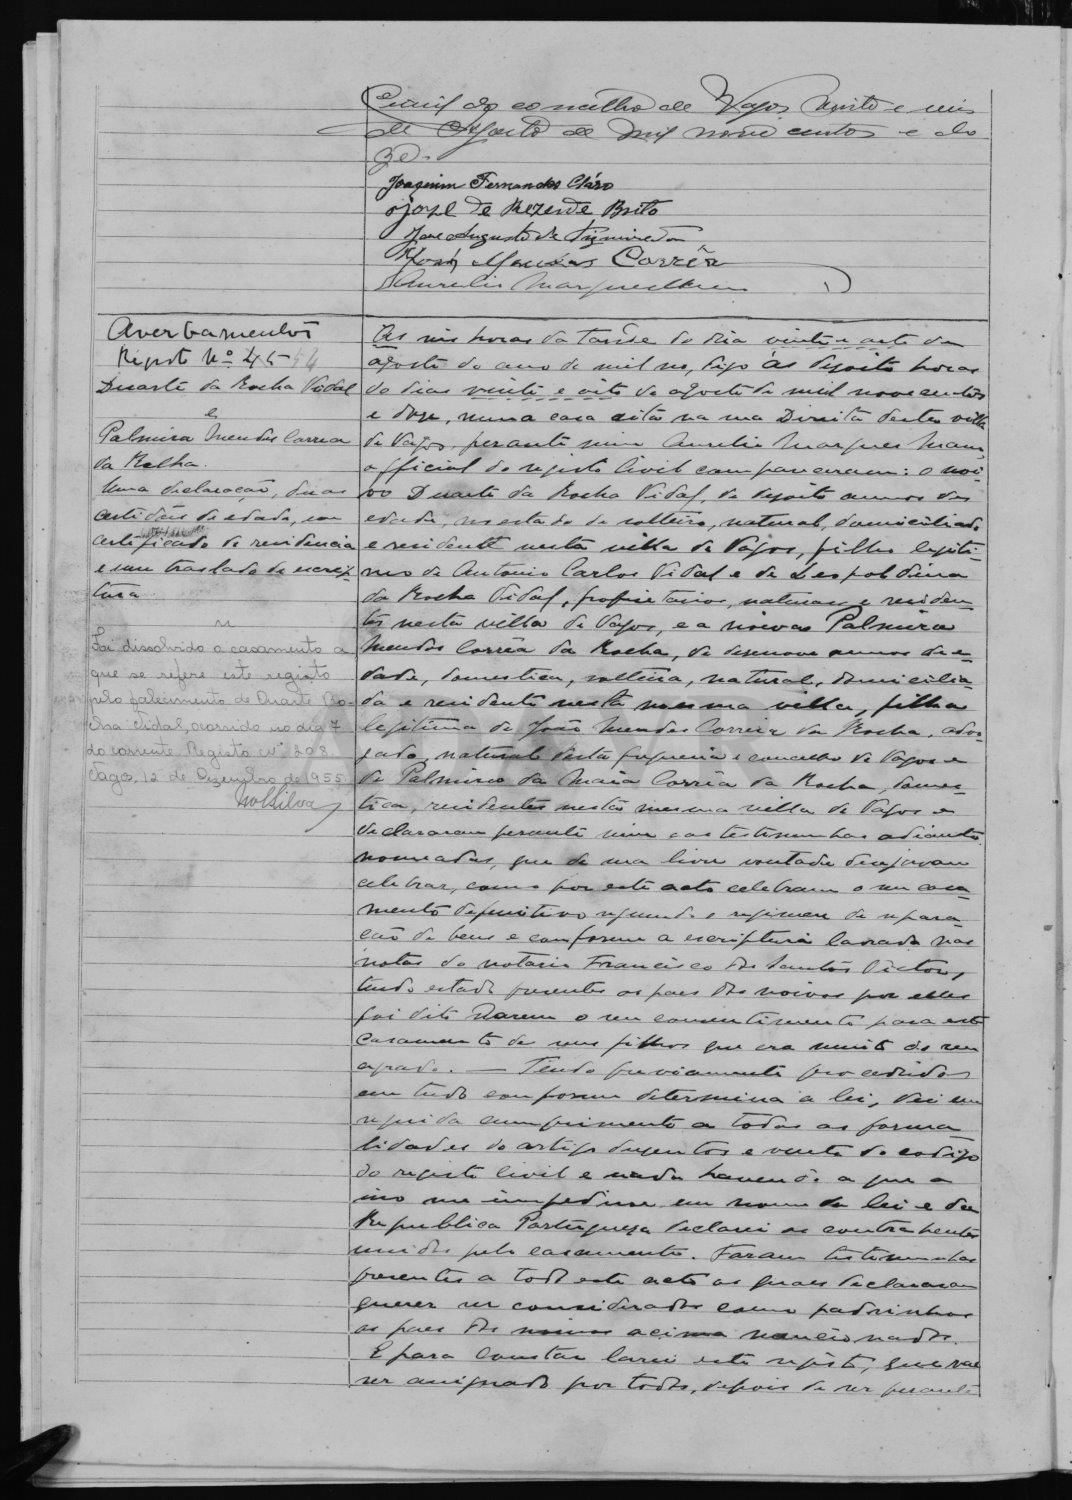 Civil do concelho de Vagos vinte e seis
de Agosto de mil nove centos e do
ze.
Joaquim Fernandes Claro
José de Rezende Brito
José Augusto de Figueiredo
Mendes Corrêa
Aurelio Marques Mano
Averbamentos
Registo Nº 45 54
Duarte da Rocha Vidal
e
Palmira Mendes Correa
da Rocha.
Uma declaração, duas
certidões de edade, um
certificado de residencia
e um traslado de escrip-
tura.
Foi dissolvido o casamento a
que se refere este registo
pelo falecimento de Duarte Ro-
cha Vidal, ocorrido no dia 7
do corrente. Registo Nº 208.
Vagos, 12 de Dezembro de 1955
As seis horas da tarde do dia vinte e sete de
agosto do anno de mil no, digo ás dezoito horas
do dias vinte e oito de agosto de mil nove centos
e doze, numa casa sita na rua Direita desta villa
de Vagos, perante mim Aurelio Marques Mano,
official do registo civil compareceram: o noi-
vo Duarte da Rocha Vidal, de dezoito annos de
edade, no estado de solteiro, natural, domiciliado
e residente nesta villa de Vagos, filho legiti-
mo de Antonio Carlos Vidal e de Leopoldina
da Rocha Vidal, proprietarios, naturaes e residen-
tes nesta villa de Vagos, e a noiva Palmira
Mendes Corrêa da Rocha, de desenove annos de e-
dade, domestica, solteira, natural, domicilia-
da e residente nesta mesma villa, filha
legitima de João Mendes Correia da Rocha, advo-
gado, natural desta freguesia e concelho de Vagos e
de Palmira da Maia Corrêa da Rocha, domes-
tica, residentes nesta mesma villa de Vagos e
declararam perante mim e as testemunhas adiante
nomeadas, que de sua livre vontade desejavam
celebrar, como por este acto celebram o seu casa-
mento definitivo segundo o regimen de separa-
ção de bens e conforme a escriptura lavrada nas
notas do notario Francisco dos Santos Victor,
tendo estado presentes os paes dos noivos por elles
foi dito darem o seu consentimento para este
casamento de seus filhos que era muito do seu
agrado. — Tendo previamente procedido
em tudo conforme determina a lei, dei em
seguida cumprimento a todas as forma-
lidades do artigo duzentos e vinte do codigo
do registo civil e nada havendo a que a
isso me impedisse em nome da lei e da
Republica Portugueza declarei os contrahentes
unidos pelo casamento. Foram testemunhas
presentes a todo este acto as quaes declararam
querer ser considerados como padrinhos
os paes dos noivos acima mencionados.
E para constar lavrei este registo, que vae
ser assignado por todos, depois de ser perante